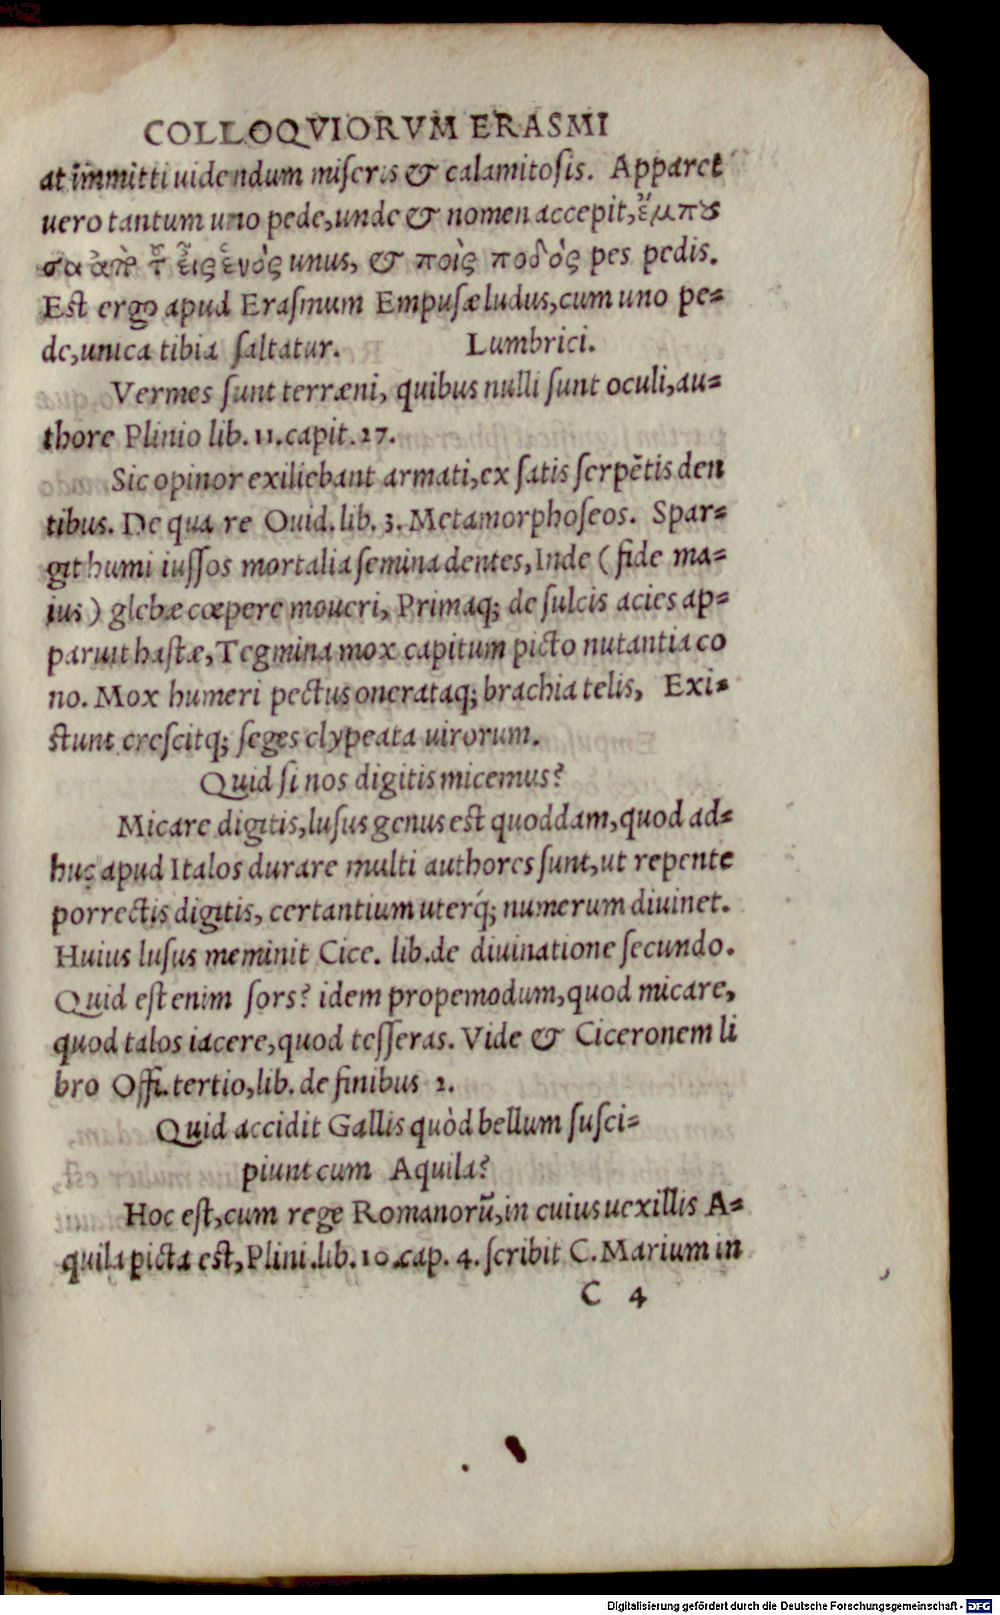 COLLOQVIORVM ERASMI
at immitti uidendum miseris & calamitosis. Apparet
uero tantum uno pede, unde & nomen accepit, ἔμπου
σα ἀπὸ τ εἷς ἑνὸς unus, & ποὶς ποδὸς pes pedis.
Est ergo apud Erasmum Empusæ ludus, cum uno pe-
de, unica tibia saltatur. Lumbrici.
Vermes sunt terræni, quibus nulli sunt oculi, au-
thore Plinio lib. 11. capit. 27.
Sic opinor exiliebant armati, ex satis serpẽtis den
tibus. De qua re Ouid. lib. 3. Metamorphoseos. Spar-
git humi iussos mortalia semina dentes, Inde (fide ma-
ius) glebæ cœpere moueri, Primaq; de sulcis acies ap-
paruit hastæ, Tegmina mox capitum picto nutantia co
no. Mox humeri pectus onerataq; brachia telis, Exi-
stunt crescitq; seges clypeata uirorum.
Quid si nos digitis micemus?
Micare digitis, lusus genus est quoddam, quod ad-
huc apud Italos durare multi authores sunt, ut repente
porrectis digitis, certantium uterq́; numerum diuinet.
Huius lusus meminit Cice. lib. de diuinatione secundo.
Quid est enim sors? idem propemodum, quod micare,
quod talos iacere, quod tesseras. Vide & Ciceronem li
bro Offi. tertio, lib. de finibus 2.
Quid accidit Gallis quòd bellum susci-
piunt cum Aquila?
Hoc est, cum rege Romanorũ, in cuius uexillis A-
quila picta est, Plini. lib. 10. cap. 4. scribit C. Marium in
C 4
Digitalisierung gefördert durch die Deutsche Forschungsgemeinschaft - DFG